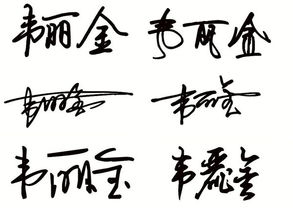 韦丽金 韦丽金
韦丽金 韦丽金
韦丽金 韦麗金